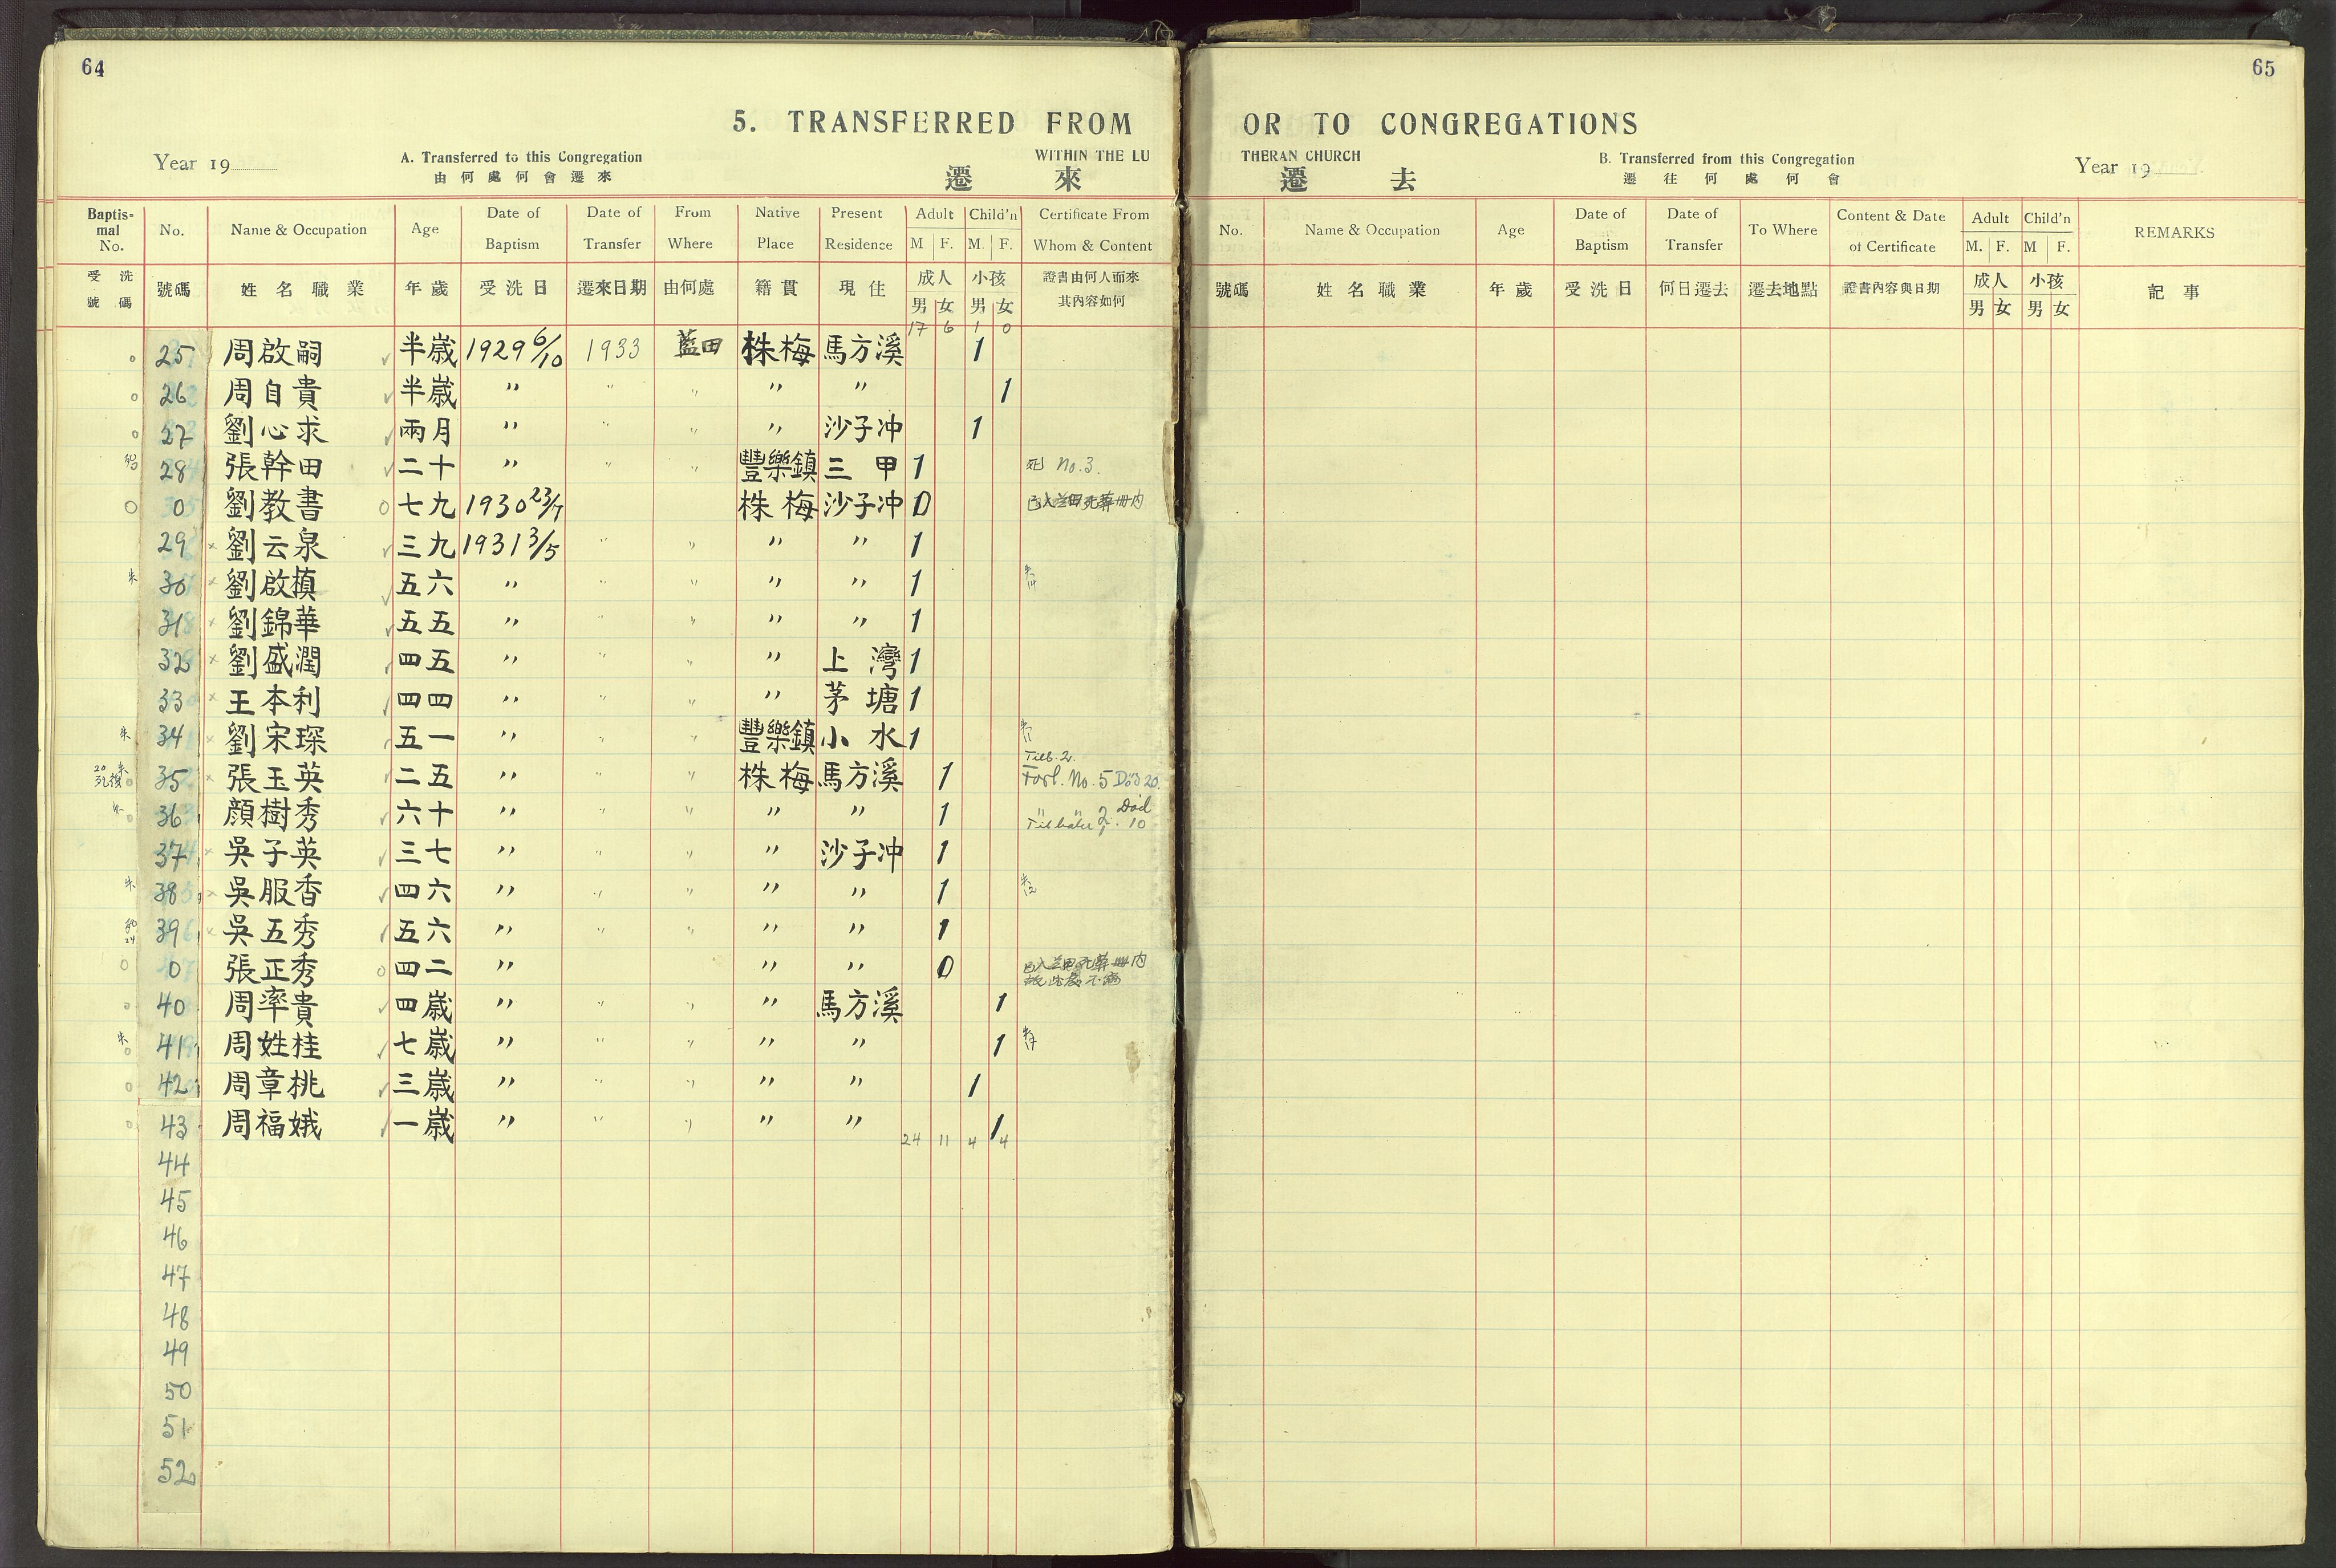 64
5. TRANSFERRED FROM
Year 19
A. Transferred to this Congregation
WITHIN THE LU
由何處何會遷來
遷來
Baptismal No. No. Name & Occupation Age Date of Baptism Date of Transfer From Where Native Place Present Residence Adult M F. Child'n M. F. Certificate From Whom & Content
受洗號碼 號碼 姓名職業 年歲 受洗日 遷來日期 由何處 籍貫 現住 成人 男 女 小孩 男 女 證書由何人而來其內容如何
17 6 1 0
o 25 周啟嗣 ✓ 半歲 1929 6/10 1933 藍田 株梅 馬方溪 1
o 26 周自貴 ✓ 半歲 〃 〃 〃 〃 〃 1
o 27 劉心求 ✓ 兩月 〃 〃 〃 〃 沙子冲 1
28 張幹田 ✓ 二十 〃 〃 〃 豐樂鎮 三甲 1 死 No. 3.
O 0 劉教書 o 七九 1930 23/7 株梅 沙子冲 0
29 × 劉云泉 ✓ 三九 1931 3/5 〃 〃 〃 〃 1
30 × 劉啟槙 ✓ 五六 〃 〃 〃 〃 〃 1
31 × 劉錦華 ✓ 五五 〃 〃 〃 〃 〃 1
32 × 劉盛潤 ✓ 四五 〃 〃 〃 〃 上灣 1
33 × 王本利 ✓ 四四 〃 〃 〃 〃 茅塘 1
34 × 劉宋琛 ✓ 五一 〃 〃 〃 豐樂鎮 小水 1
Tilb. 2.
35 × 張玉英 ✓ 二五 〃 〃 〃 株梅 馬方溪 1 Forl. No. 5 Död 20.
36 顔樹秀 ✓ 六十 〃 〃 〃 〃 〃 1 〃 〃 2. Död 10
37 × 吳子英 ✓ 三七 〃 〃 〃 〃 沙子冲 1
38 × 吳服香 ✓ 四六 〃 〃 〃 〃 〃 1
39 × 吳五秀 ✓ 五六 〃 〃 〃 〃 〃 1
O 0 張正秀 o 四二 〃 〃 〃 0
o 40 周率貴 ✓ 四歲 〃 〃 〃 〃 馬方溪 1
o 41 周姓桂 ✓ 七歲 〃 〃 〃 〃 〃 1
o 42 周章桃 ✓ 三歲 〃 〃 〃 〃 〃 1
o 43 周福娥 ✓ 一歲 〃 〃 〃 〃 〃 1
24 11 4 4
44
45
46
47
48
49
50
51
52
65
OR TO CONGREGATIONS
THERAN CHURCH
B. Transferred from this Congregation
Year 19
遷去
遷往何處何會
No. Name & Occupation Age Date of Baptism Date of Transfer To Where Content & Date of Certificate Adult M. F. Child'n M F. REMARKS
號碼 姓名職業 年歲 受洗日 何日遷去 遷去地點 證書內容與日期 成人 男 女 小孩 男 女 記事